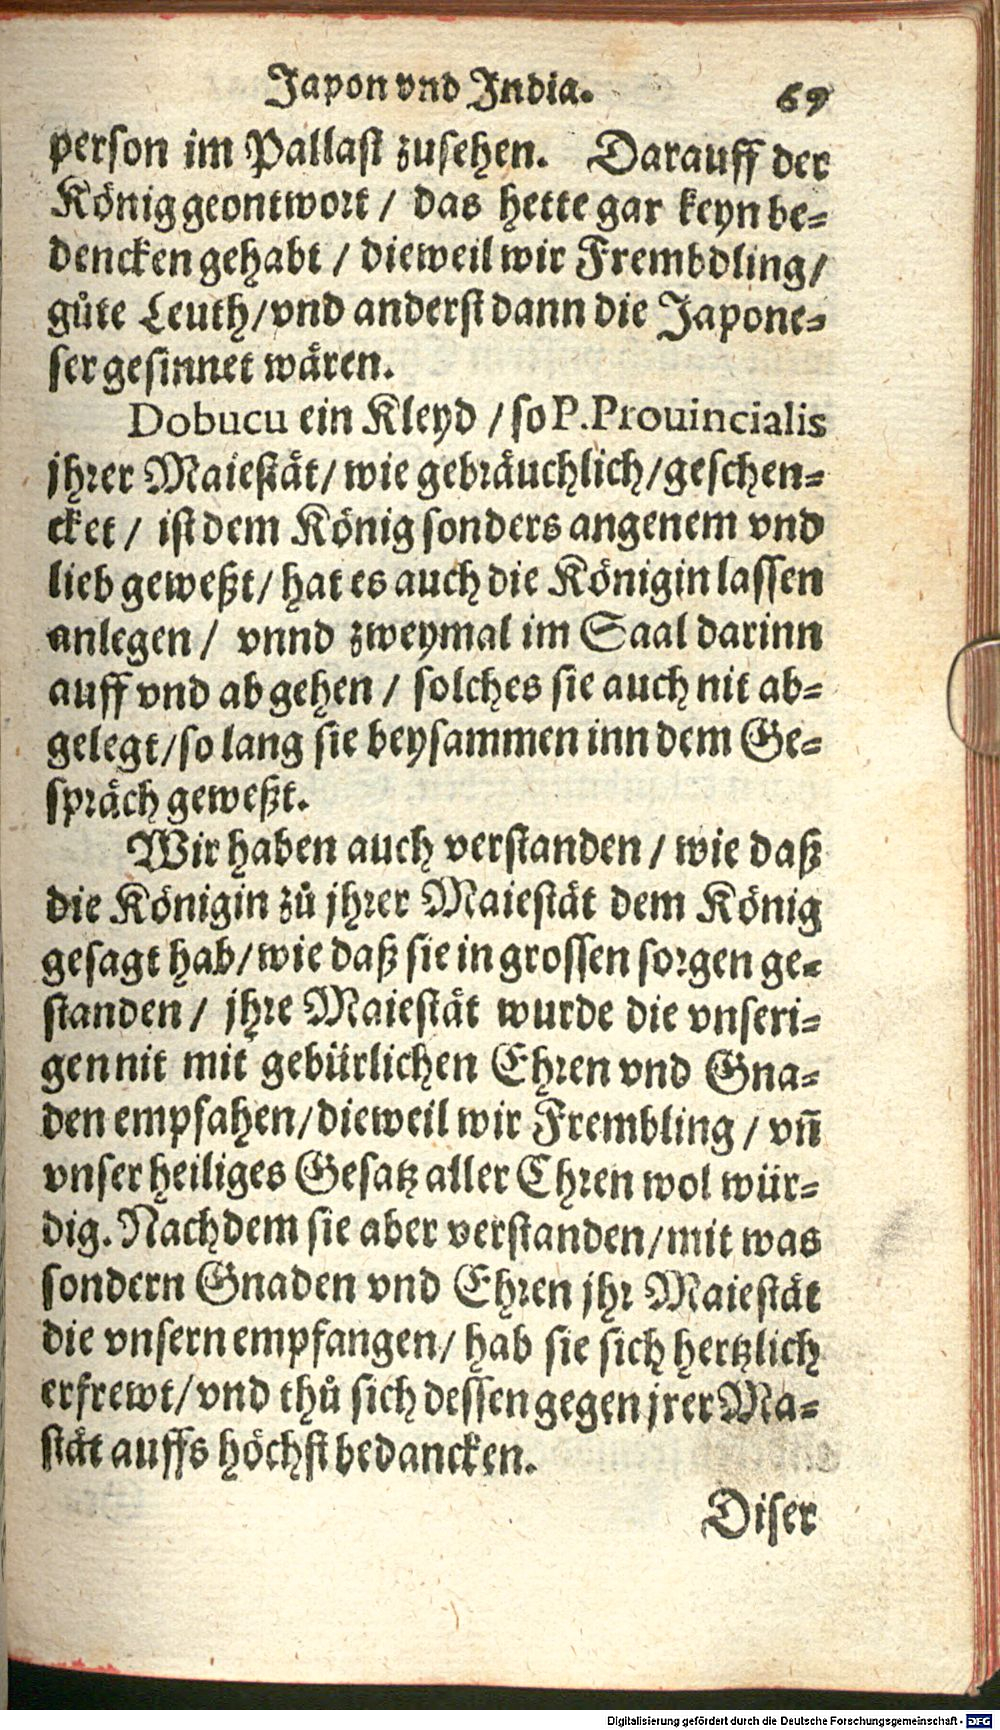 Japon vnd India. 69
person im Pallast zusehen. Darauff der
König geontwort / das hette gar keyn be-
dencken gehabt / dieweil wir Frembdling/
gůte Leuth/vnd anderst dann die Japone-
ser gesinnet wären.
Dobucu ein Kleyd / so P. Prouincialis
jhrer Maiestät/ wie gebräuchlich/geschen-
cket / ist dem König sonders angenem vnd
lieb geweßt/ hat es auch die Königin lassen
anlegen / vnnd zweymal im Saal darinn
auff vnd ab gehen / solches sie auch nit ab-
gelegt/so lang sie beysammen inn dem Ge-
spräch geweßt.
Wir haben auch verstanden / wie daß
die Königin zů jhrer Maiestät dem König
gesagt hab/wie daß sie in grossen sorgen ge-
standen / jhre Maiestät wurde die vnseri-
gen nit mit gebürlichen Ehren vnd Gna-
den empfahen/dieweil wir Frembling / vñ
vnser heiliges Gesatz aller Ehren wol wür-
dig. Nachdem sie aber verstanden/mit was
sondern Gnaden vnd Ehren jhr Maiestät
die vnsern empfangen/ hab sie sich hertzlich
erfrewt/vnd thů sich dessen gegen jrer Ma-
stät auffs höchst bedancken.
Diser
Digitalisierung gefördert durch die Deutsche Forschungsgemeinschaft - DFG